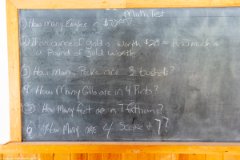 Math Test
1) How many Eagles in $
2) If an ounce of gold is worth $20 = how much is
a Pound of Gold worth
3) How Many Pecks are 3 bushels?
4 How Many Gills are in 4 Pints?
5) How Many feet are in 7 Fathoms?
6 How Many are 4 Score & 7?